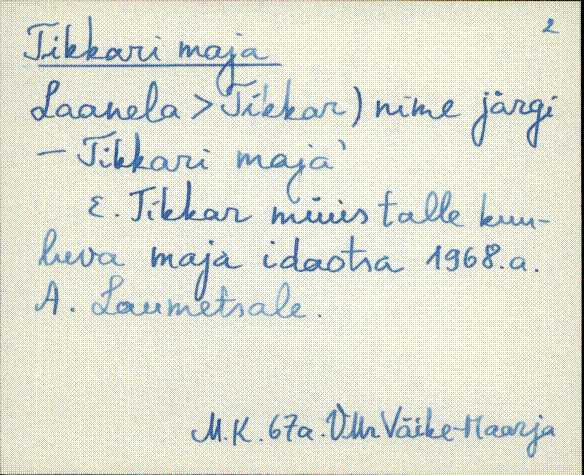 2
Tikkari maja
Laanela > Tikkar) nime järgi
– Tikkari maja'
E. Tikkar müüs talle kuu-
luva maja idaotsa 1968.a.
A. Laumetsale.
M.K. 67a. VMr Väike-Maarja